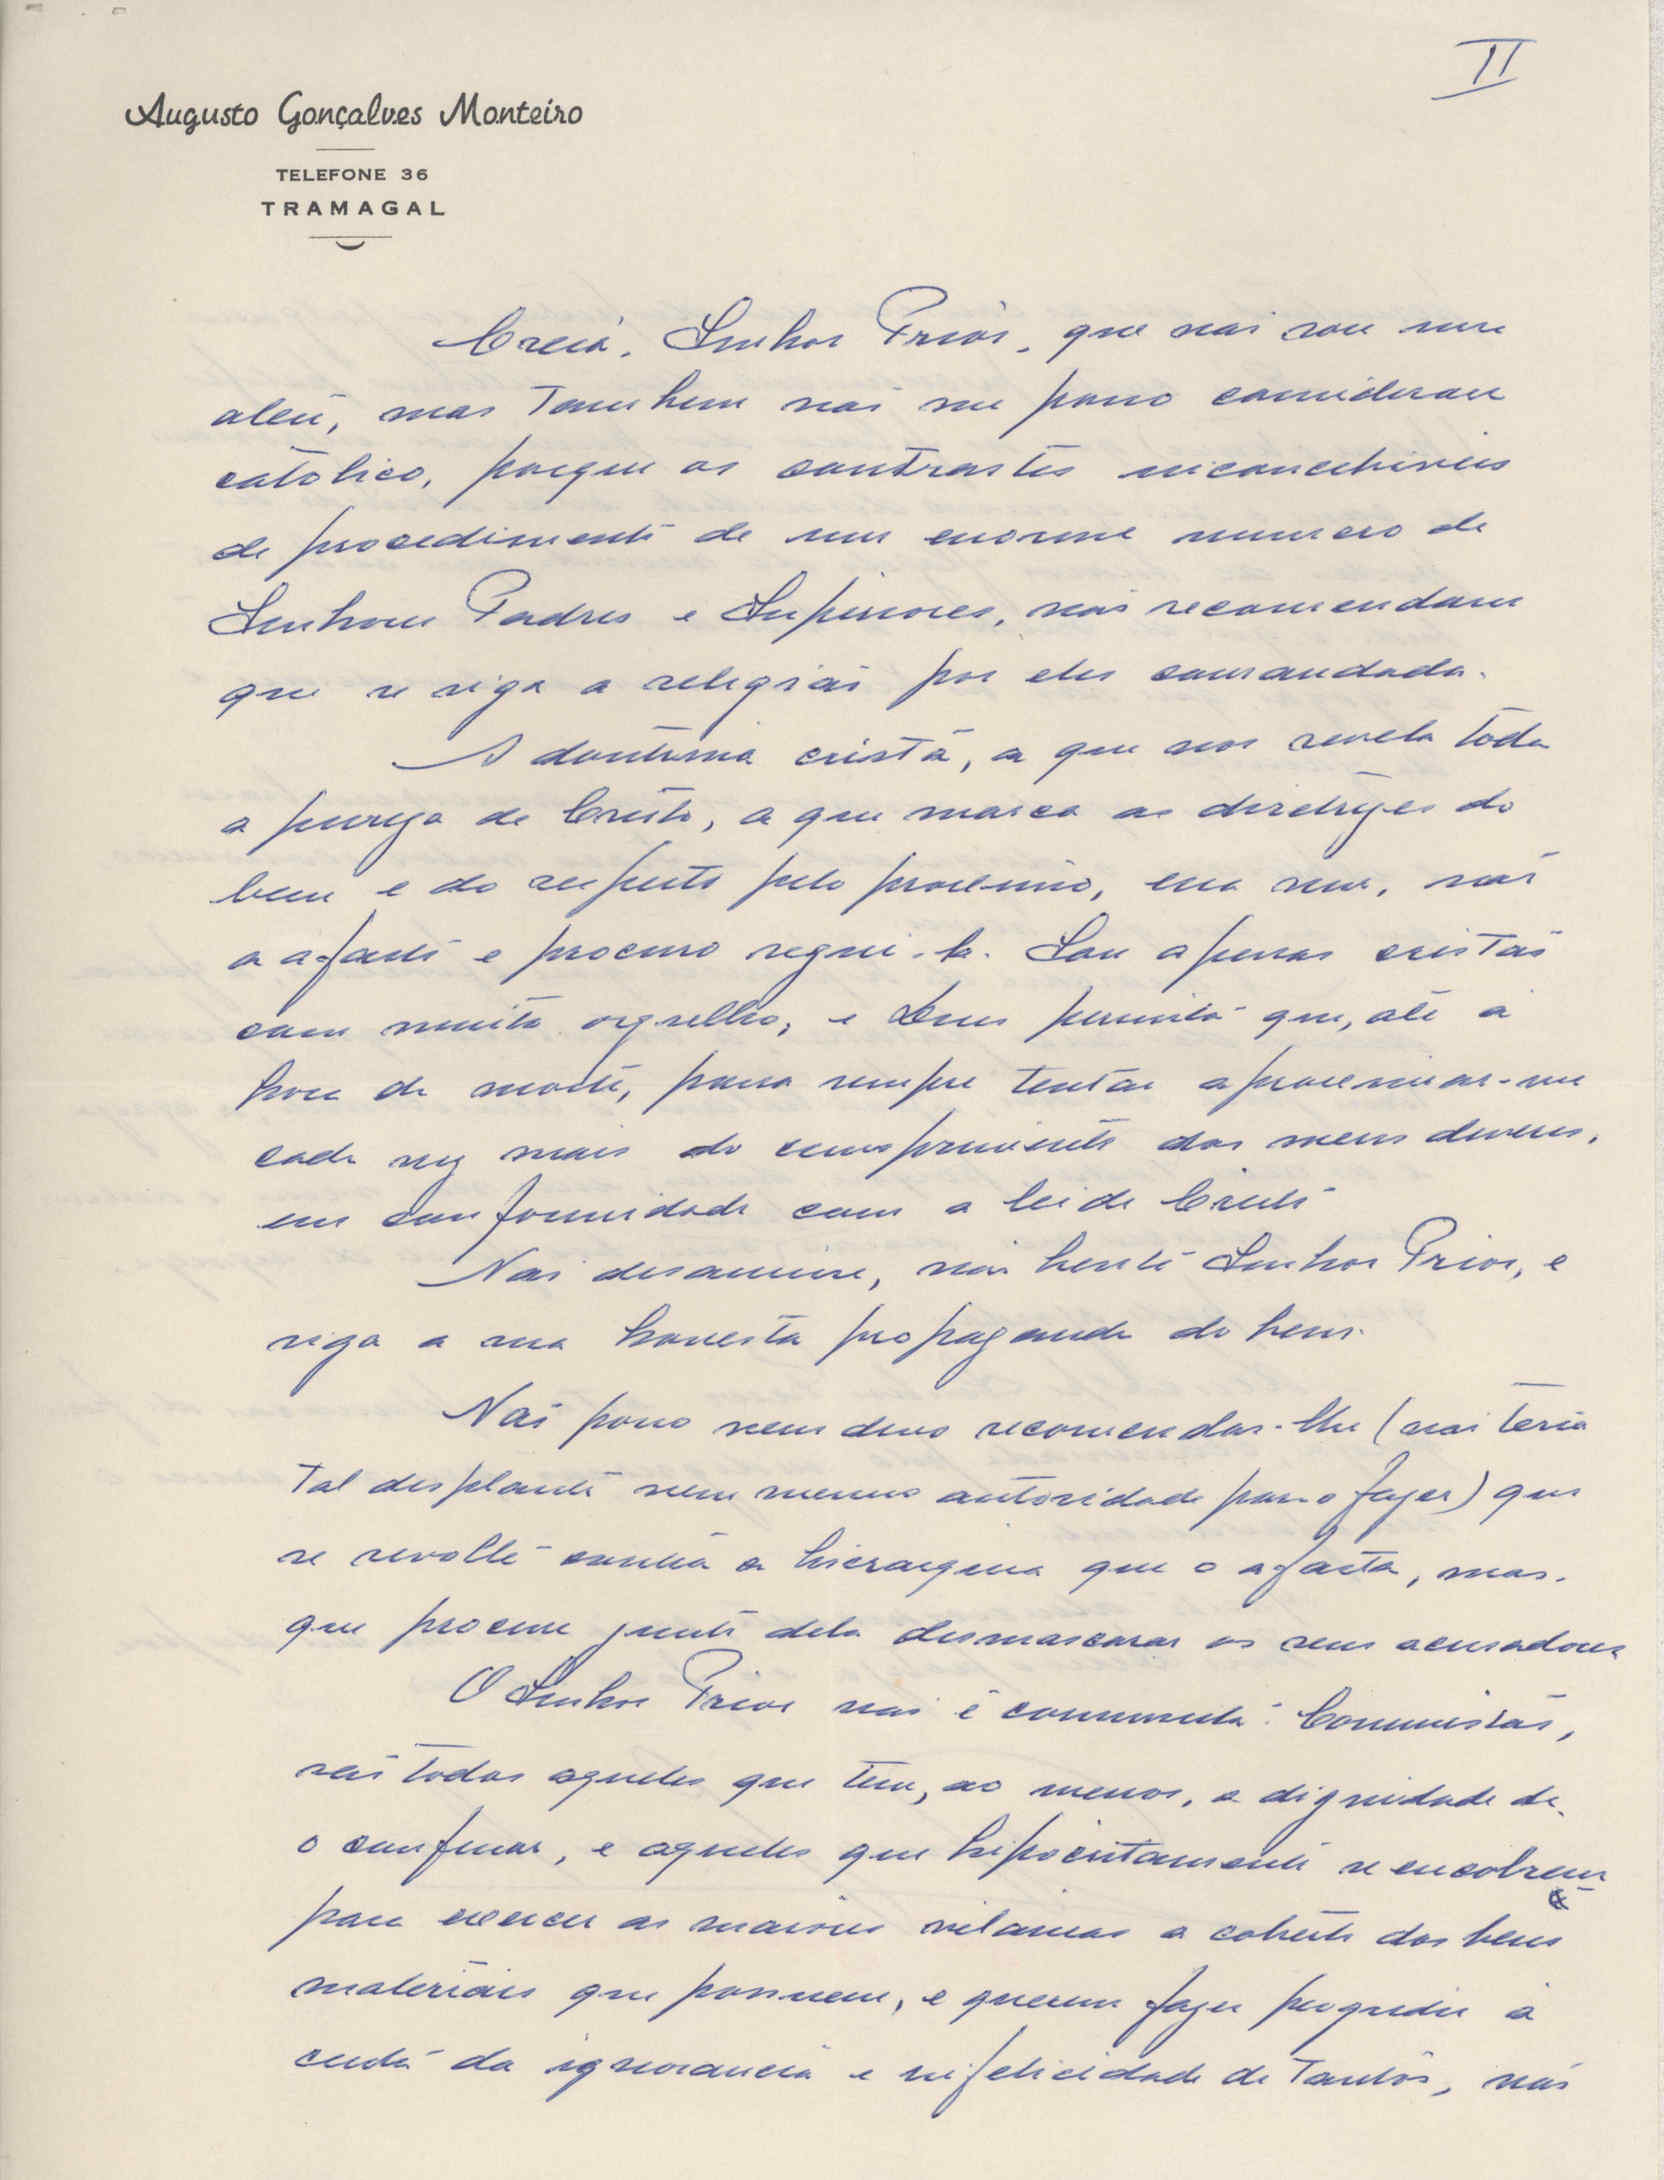 II
Augusto Gonçalves Monteiro
TELEFONE 36
TRAMAGAL
Creia, Senhor Prior, que não sou um
ateu, mas tambem não me posso considerar
catolico, porque os contrastes inconcebiveis
de procedimento de um enorme numero de
Senhores Padres e Superiores, não recomendam
que se siga a religião por eles comandada.
A doutrina cristã, a que nos revela toda
a pureza de Cristo, a que marca as diretrizes do
bem e do respeito pelo proximo, essa sim, não
a afasto e procuro segui-la. Sou apenas cristão
com muito orgulho, e Deus permita que, até á
hora da morte, possa sempre tentar aproximar-me
cada vez mais do cumprimento dos meus deveres,
em conformidade com a lei de Cristo
Não desanime, não hesite Senhor Prior, e
siga a sua honesta propaganda do bem.
Não posso nem devo recomendar-lhe (não teria
tal desplante nem mesmo autoridade para o fazer) que
se revolte contra a hierarquia que o afasta, mas
que procure junto dela desmascarar os seus acusadores
O Senhor Prior não é comunista. Comunistas,
são todos aqueles que tem, ao menos, a dignidade de
o confessar, e aqueles que hipocritamente se encobrem
para exercer as maiores vilanias a coberto dos bens
materiais que possuem, e querem fazer progredir á
custa da ignorancia e infelicidade de tantos, nás